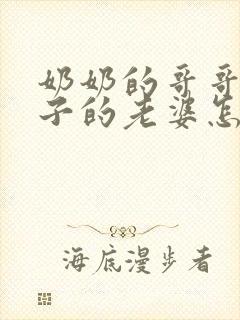 奶奶的哥哥
子的老婆怎
海底漫步者